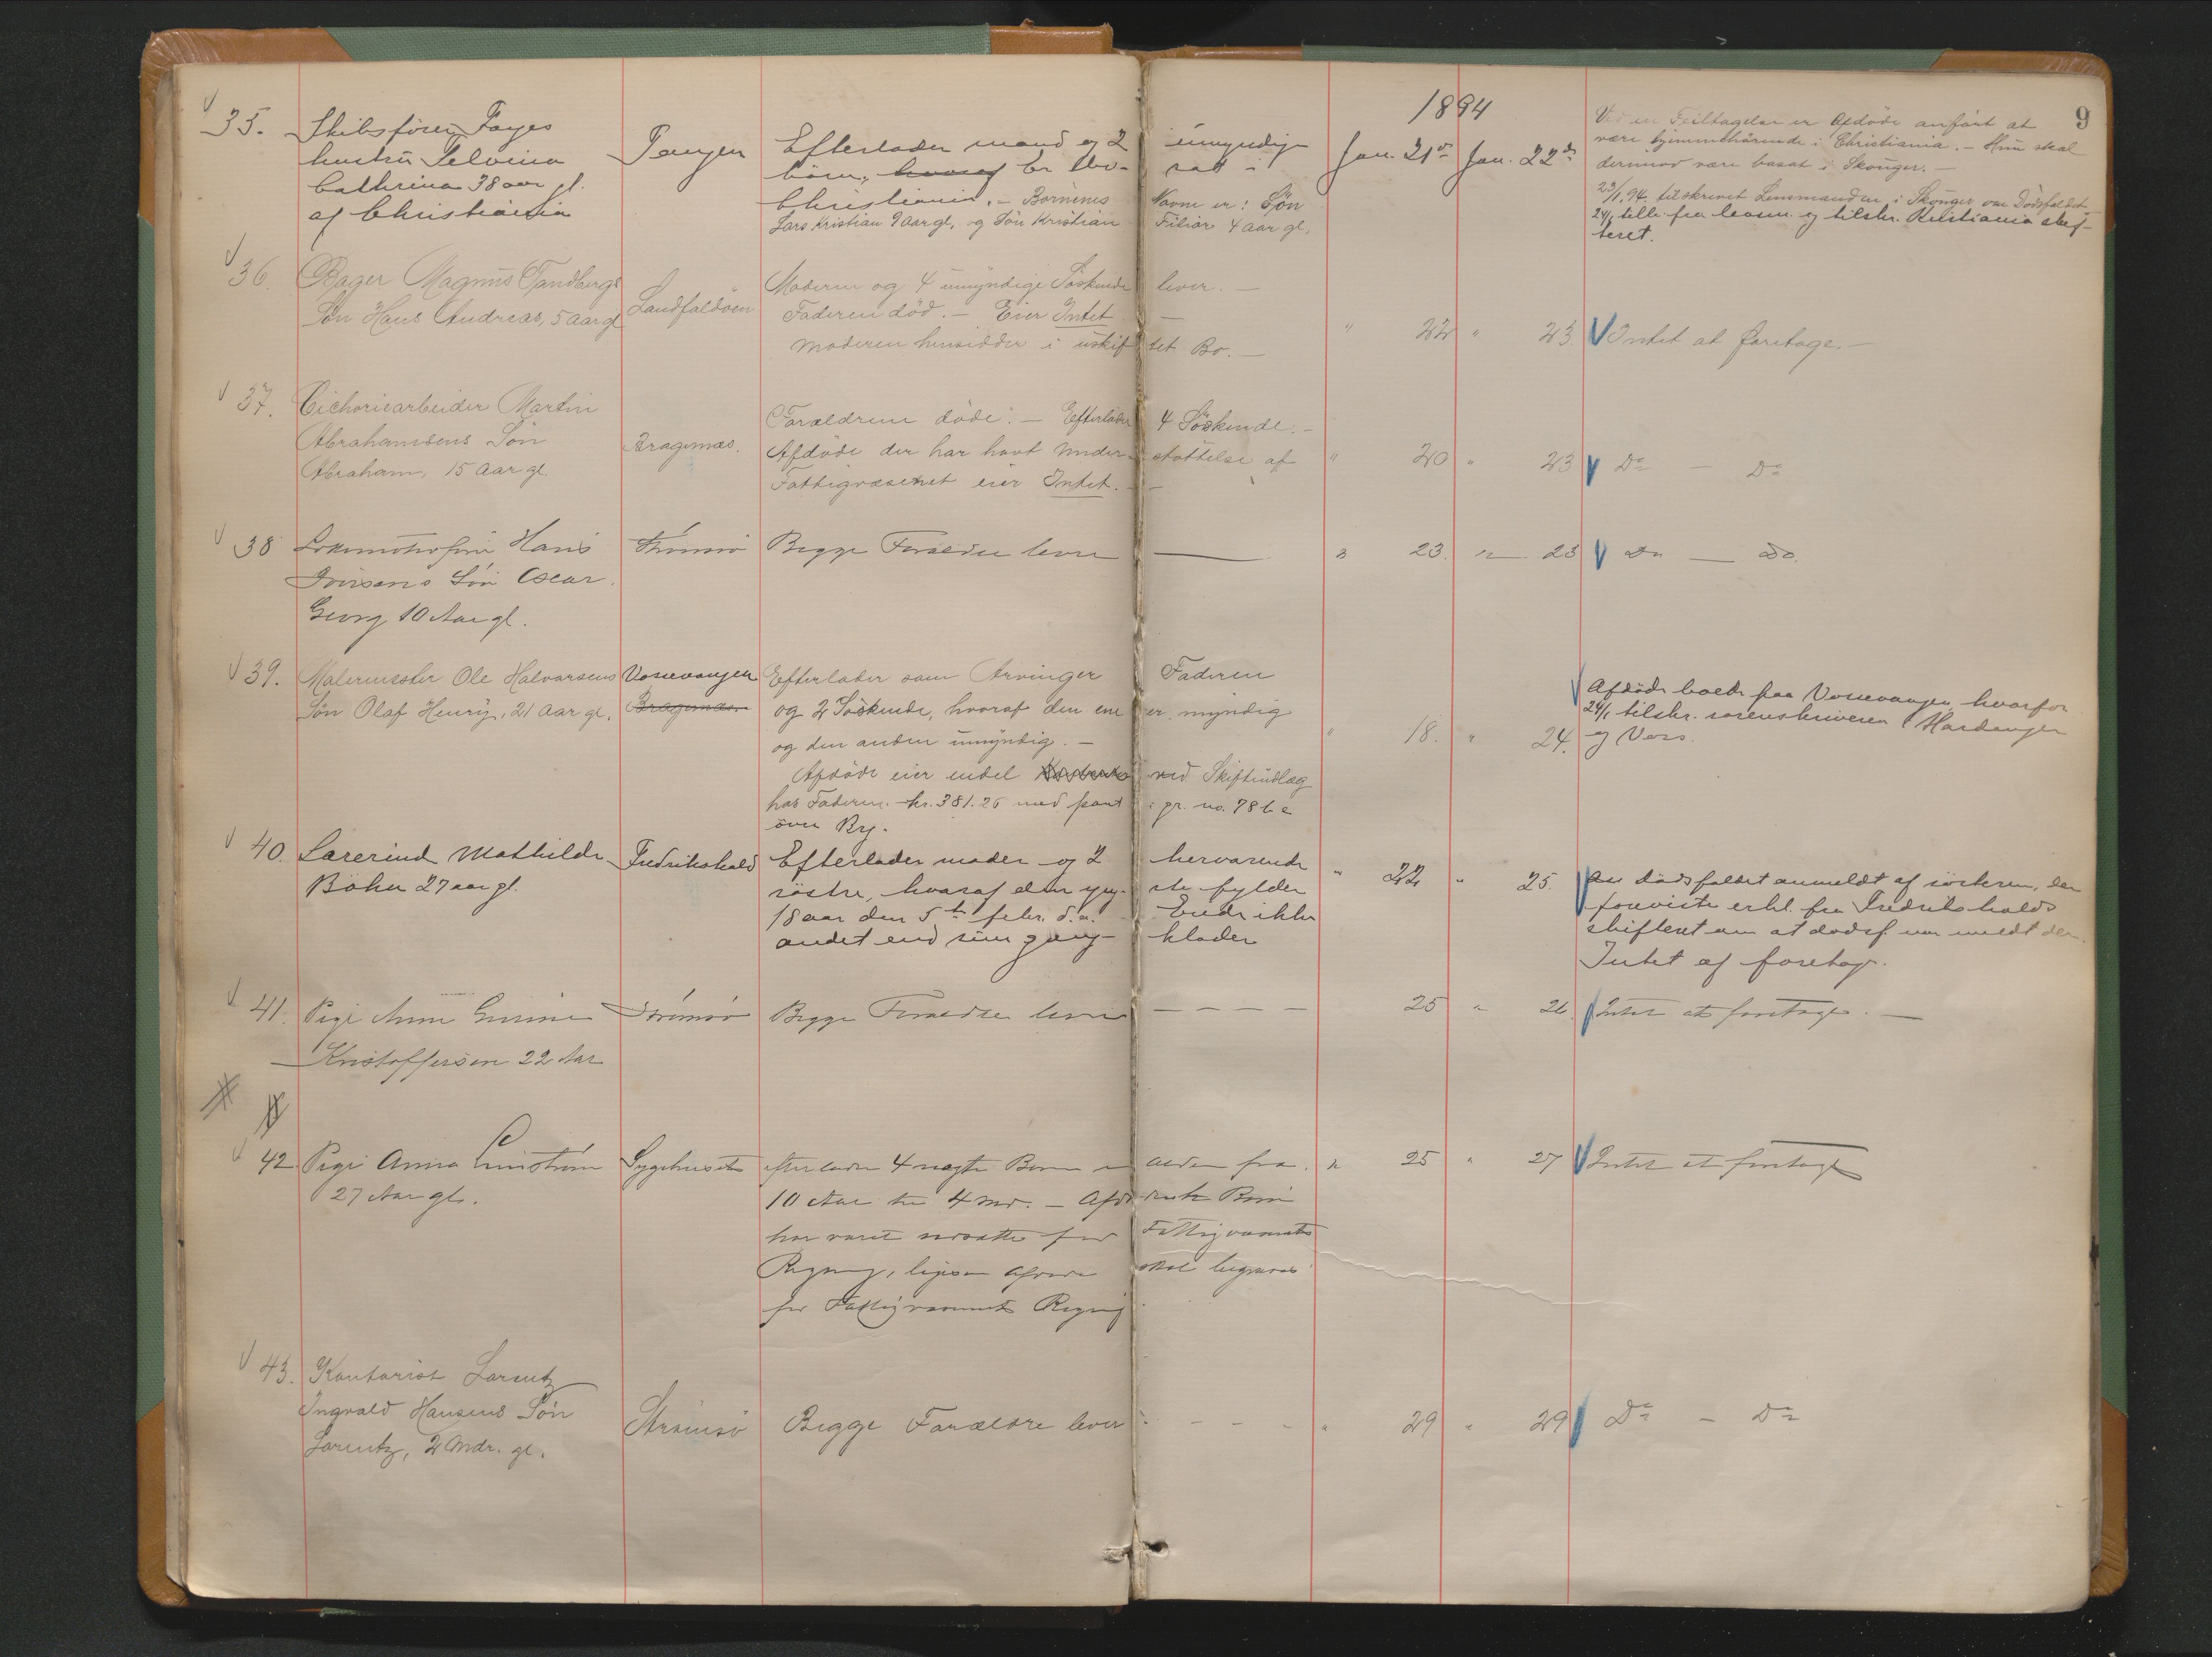 1894
9
35. Skibsfører Foyes Tangen Efterlader mand og 2 umyndige Jan. 21de Jan. 22de
hustru Selvina børn, hvoraf Er bo- satt i
Cathrina 38 aar gl. Christiania. - Børnenes Navne er: Søn
af Christiania Lars Kristian 9 Aar gl, og Søn Kristian Filiar 4 aar gl.
Ved en Feiltagelse er Afdøde anført at
være hjemmehørende i Christiania. - Hun skal
derimod være bosat i Skouger. -
23/1 94 tilskrevet Lensmanden i Skouger om Dødsfaldet
24/1 fra lensm. og tilskr. Kristiania skif-
teret.
36. Bager Magnus Tandbergs Landfaldøen Moderen og 4 umyndige Søskende lever. -
Søn Hans Andreas, 5 aar gl Faderen død. - Eier Intet -
Moderen hensidder i uskif tet Bo. - " 22 " 23. Intet at foretage. -
37. Cichoriearbeider Martin Forældrene døde. - Efterlader 4 Søskende. -
Abrahamsens Søn Bragernæs. Afdøde der har havt under- støttelse af " 20 " 23 Do - Do
Abraham, 15 Aar gl. Fattigvæsenet eier Intet. -
38 Lokomotivfører Hans Strømsø Begge Forældre lever — " 23. " 23 Do — Do.
Iversens Søn Oscar
Georg 10 Aar gl.
39. Malermester Ole Halvorsens Vossevangen Efterlader som Arvinger Faderen
Søn Olaf Henry, 21 Aar gl. Bragernæs og 2 Søskende, hvoraf den ene er myndig
og den anden umyndig. - " 18. " 24.
Afdøde eier endel ved Skifteudlæg
hos Faderen kr. 381.26 med pant i gr. no. 786 a
øvre By.
Afdøde boede paa Vossevangen, hvorfor
24/1 tilskr. sorenskriveren i Hardanger
og Voss.
40. Lærerinde Mathilde Fredrikshald Efterlader moder og 2 herværende " 22 " 25.
Bøhn 27 aar gl. søstre, hvoraf den yng- ste fylder
18 aar den 5te febr. d.a. Eiede ikke
andet end sine gang- klæder
dødsfaldet anmeldt af søsteren, der
foreviste erkl. fra Fredrikshalds
skifteret om at dødsf. var meldt der.
Intet at foretage.
41. Pige Anne Gurine Strømsø Begge Forældre lever - - - - 25 " 26. Intet at foretage. -
Kristoffersen 22 Aar
42 Pige Anna Linstrøm Sygehuset efterlader 4 uægte Børn i Alder fra " 25 " 27 Intet at foretage
27 Aar gl. 10 Aar til 4 Md. - Afdødes Børn
har været udsatte for Fattigvæsenets
Regning, ligesom Afdøde skal begraves
for Fattigvæsenets Regning
43. Kontorist Lorentz
Ingvald Hansens Søn Strømsø Begge Forældre lever. - - - " 29 " 29 Do - Do
Lorentz, 2 Mdr. gl.